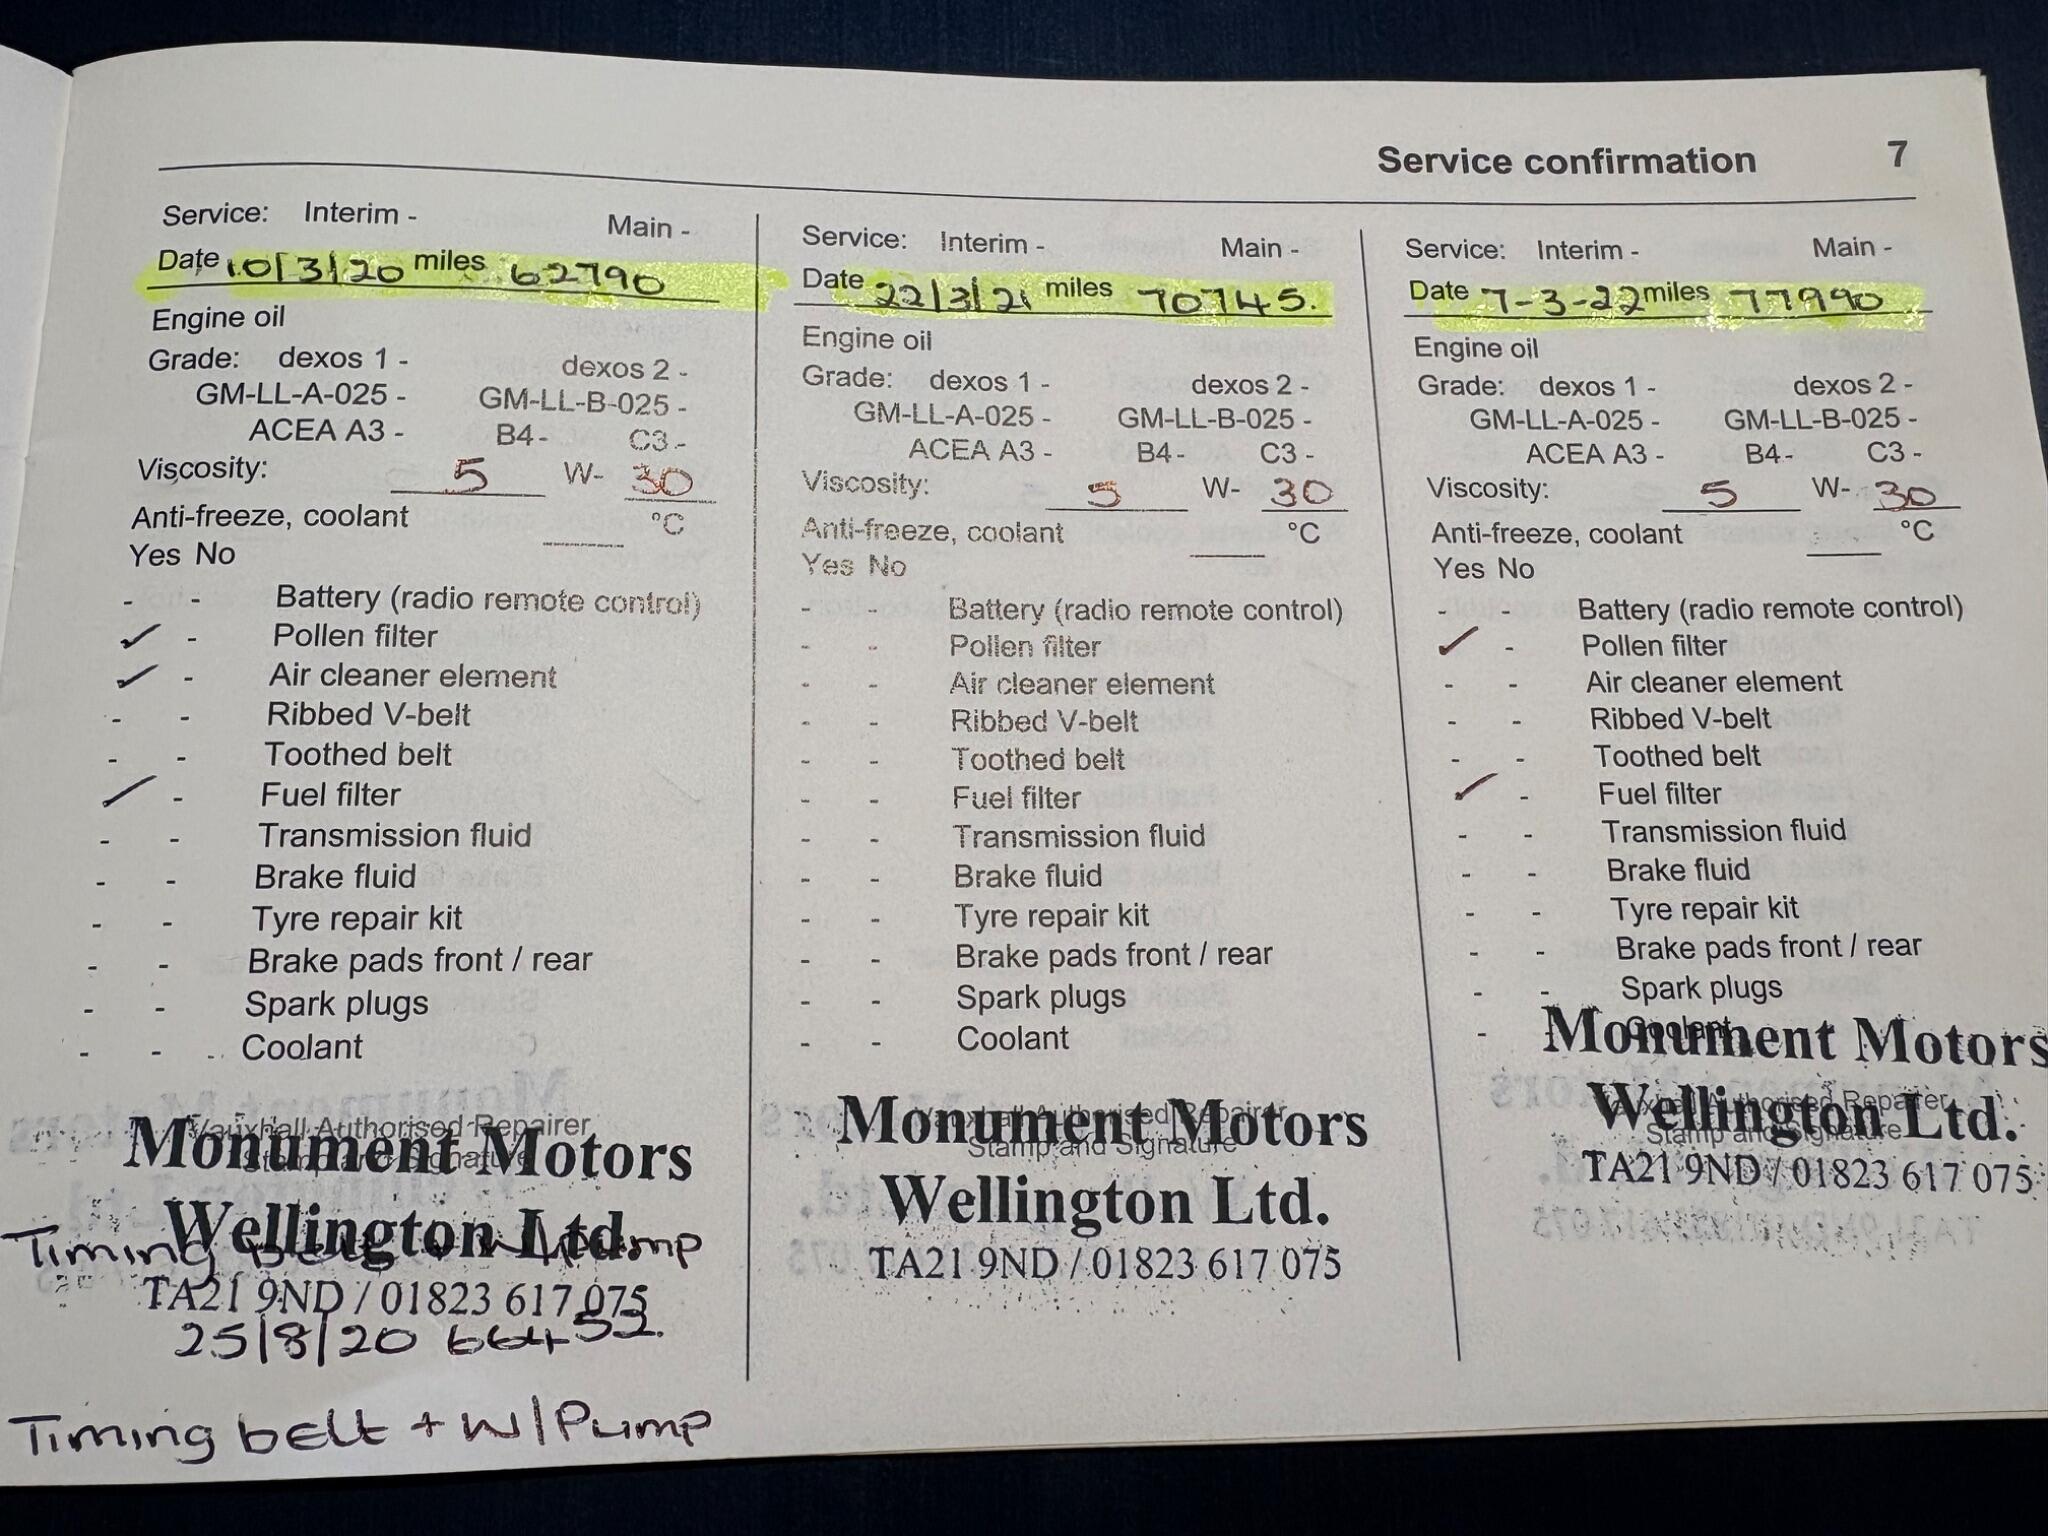 Service confirmation 7
Service: Interim - Main -
Date 10/3/20 miles 62790
Engine oil
Grade: dexos 1 - dexos 2 -
GM-LL-A-025 - GM-LL-B-025 -
ACEA A3 - B4- C3 -
Viscosity: 5 W- 30
Anti-freeze, coolant °C
Yes No
- - Battery (radio remote control)
✓ - Pollen filter
✓ - Air cleaner element
- - Ribbed V-belt
- - Toothed belt
✓ - Fuel filter
- - Transmission fluid
- - Brake fluid
- - Tyre repair kit
- - Brake pads front / rear
- - Spark plugs
- - Coolant
Vauxhall Authorised Repairer
Stamp and Signature
Monument Motors
Wellington Ltd.
Timing belt + W/Pump
TA21 9ND / 01823 617 075
25/8/20 66453.
Timing belt + W/Pump
Service: Interim - Main -
Date 22/3/21 miles 70745.
Engine oil
Grade: dexos 1 - dexos 2 -
GM-LL-A-025 - GM-LL-B-025 -
ACEA A3 - B4- C3 -
Viscosity: 5 W- 30
Anti-freeze, coolant °C
Yes No
- - Battery (radio remote control)
- - Pollen filter
- - Air cleaner element
- - Ribbed V-belt
- - Toothed belt
- - Fuel filter
- - Transmission fluid
- - Brake fluid
- - Tyre repair kit
- - Brake pads front / rear
- - Spark plugs
- - Coolant
Vauxhall Authorised Repairer
Stamp and Signature
Monument Motors
Wellington Ltd.
TA21 9ND / 01823 617 075
Service: Interim - Main -
Date 7-3-22 miles 77990
Engine oil
Grade: dexos 1 - dexos 2 -
GM-LL-A-025 - GM-LL-B-025 -
ACEA A3 - B4- C3 -
Viscosity: 5 W- 30
Anti-freeze, coolant °C
Yes No
- - Battery (radio remote control)
✓ - Pollen filter
- - Air cleaner element
- - Ribbed V-belt
- - Toothed belt
✓ - Fuel filter
- - Transmission fluid
- - Brake fluid
- - Tyre repair kit
- - Brake pads front / rear
- - Spark plugs
- - Coolant
Monument Motors
Vauxhall Authorised Repairer
Stamp and Signature
Wellington Ltd.
TA21 9ND / 01823 617 075